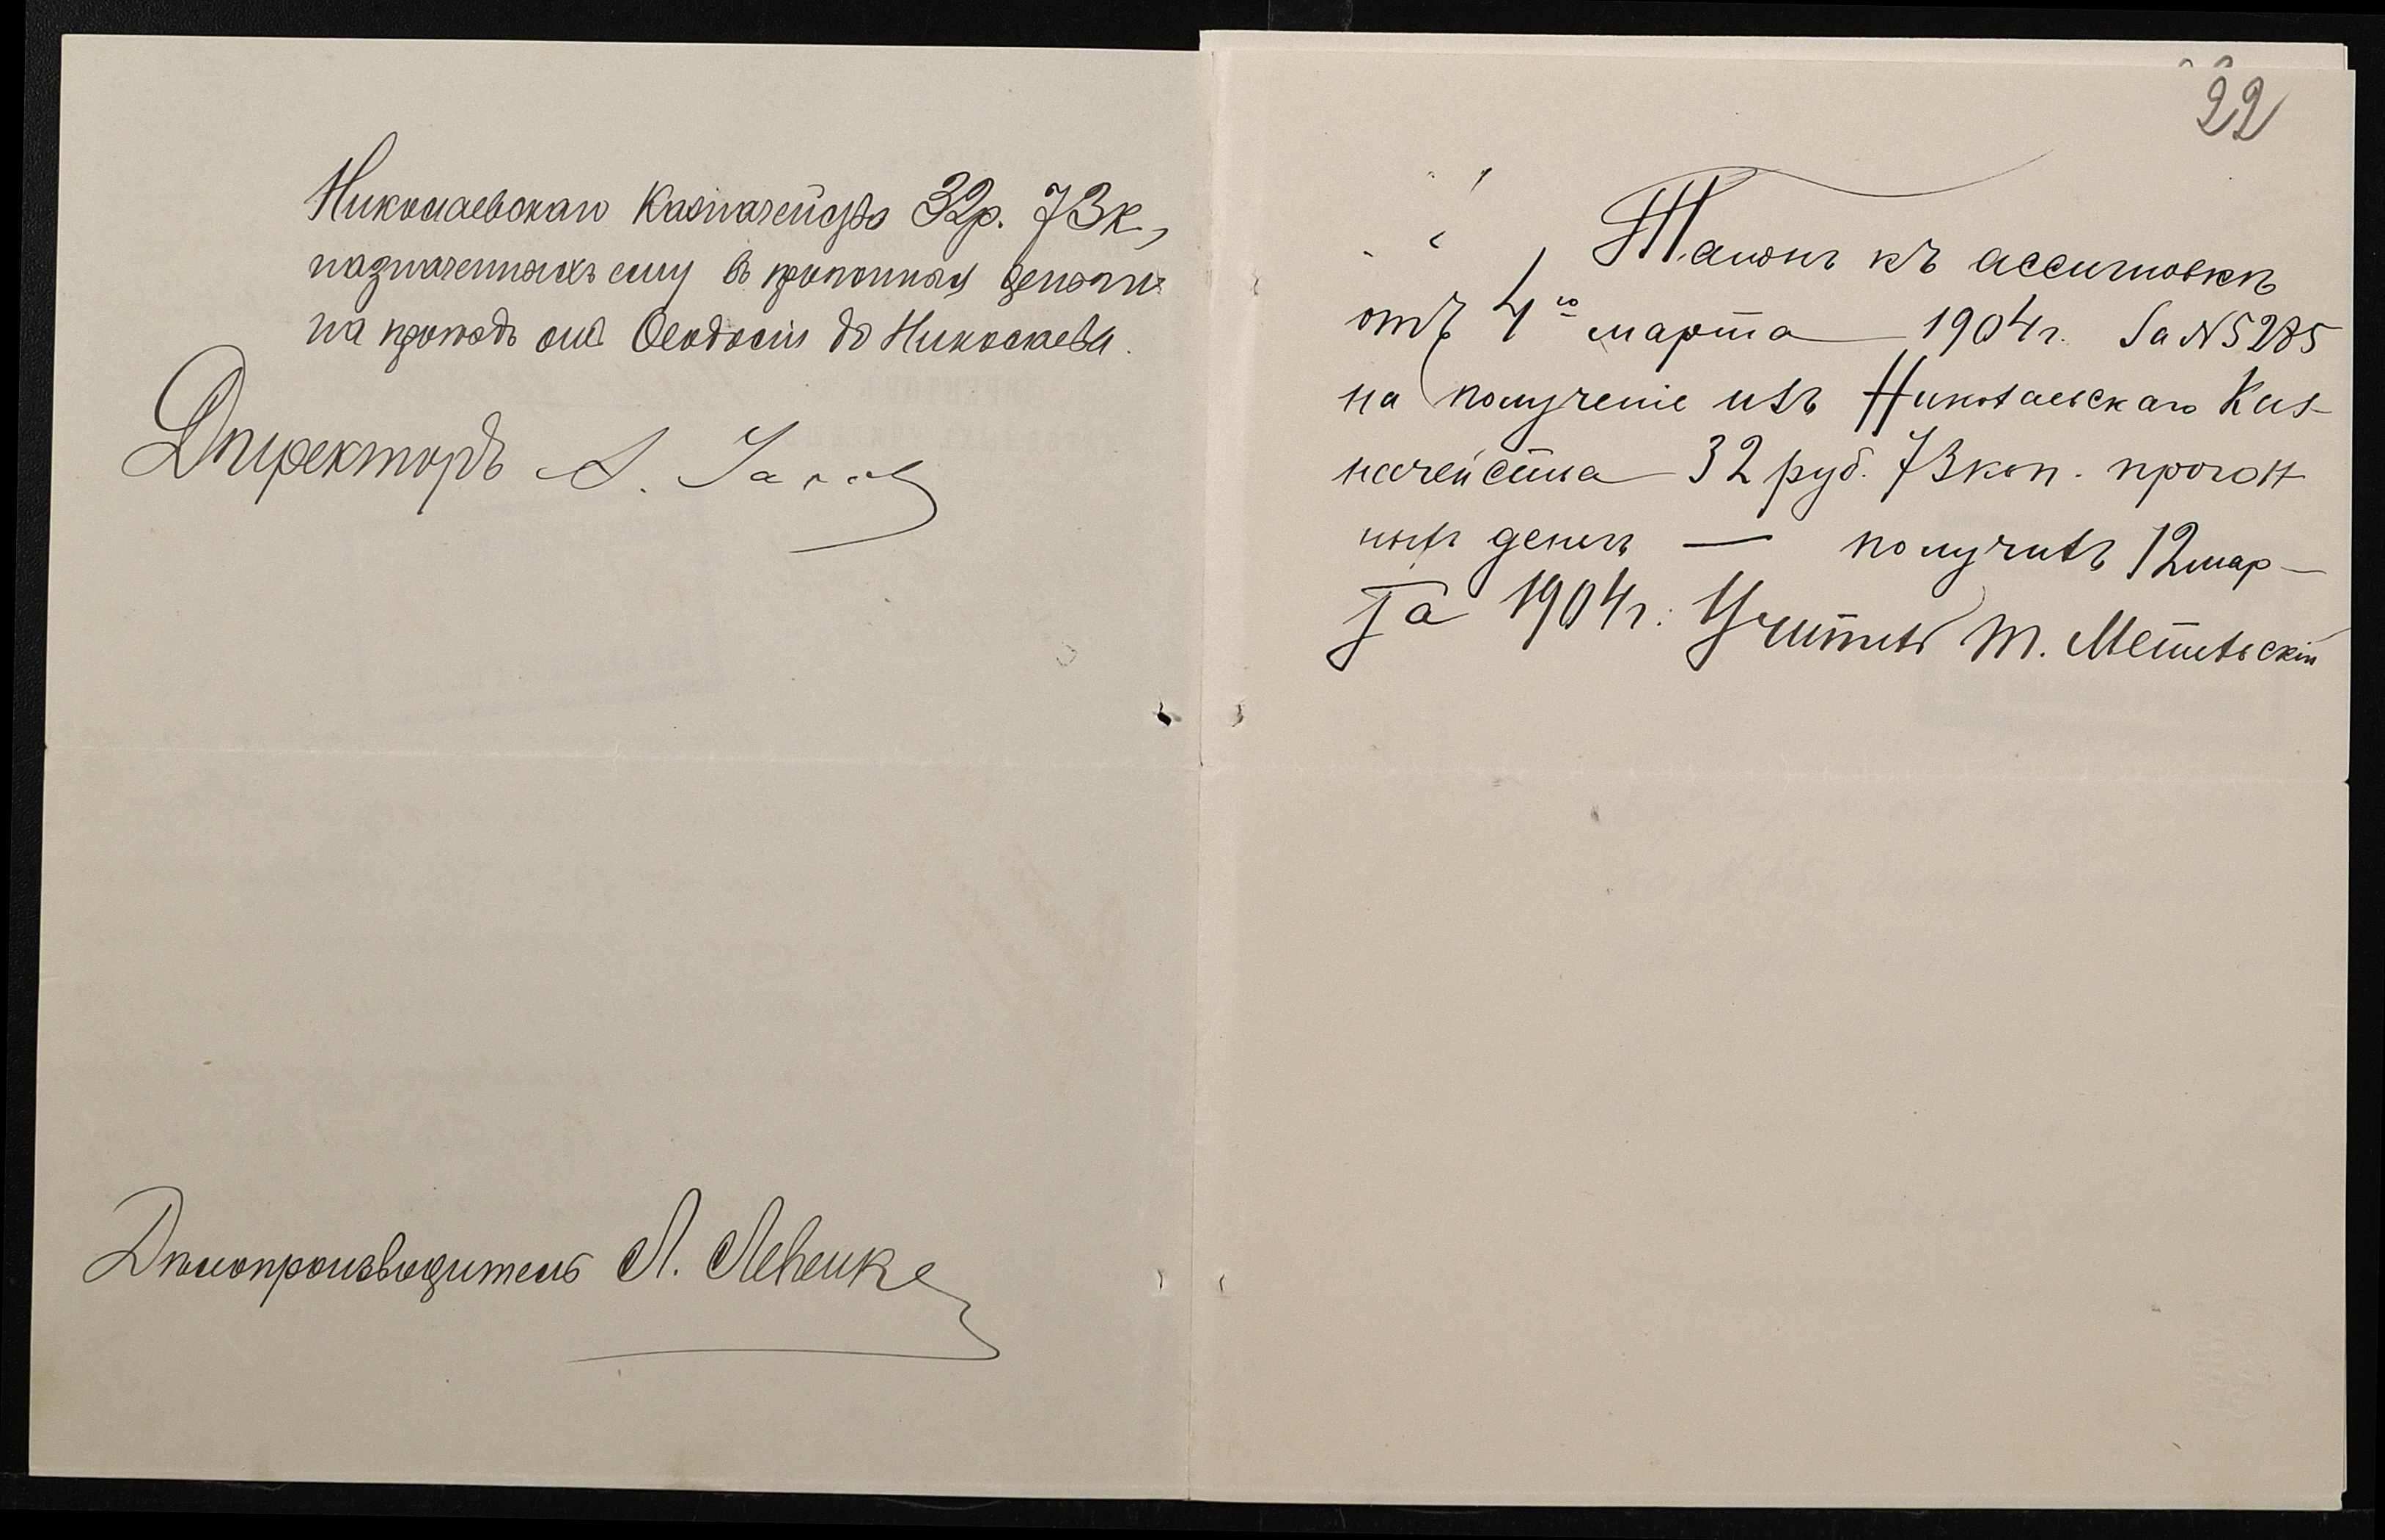 Николаевскаго Казначейства 32р. 73к.,
назначенныхъ ему въ прогонныя деньги
на проѣздъ отъ Ѳеодосіи до Николаева.
Директоръ А.
Дѣлопроизводитель Л. Левенко
22
Талонъ къ ассигновкѣ
отъ 4го марта 1904 г. За N 5285
на полученіе изъ Николаевскаго Каз-
начейства 32 руб. 73 коп. прогон
ныхъ денегъ — получилъ 12 мар-
та 1904 г. Учитель М. Метельскій